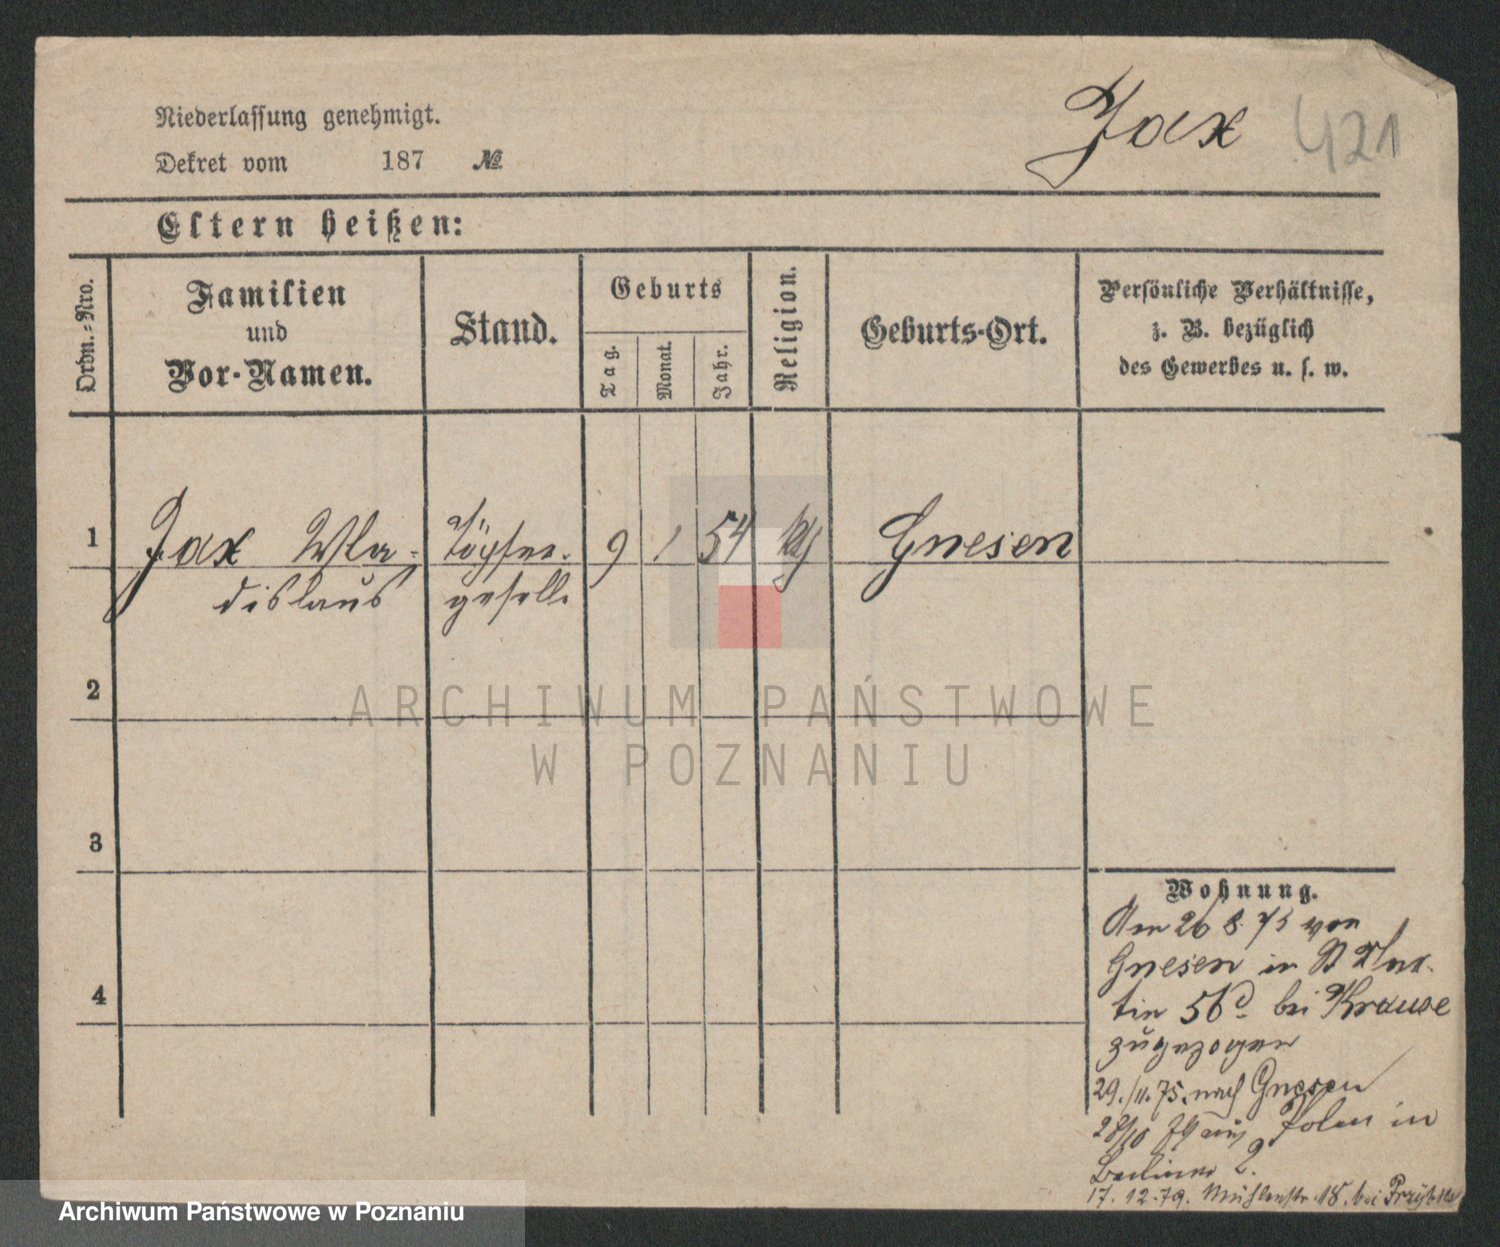 Niederlassung genehmigt.
Dekret vom 187 №
Jax 421
Eltern heißen:
Ordn.-Nro.
Familien
und
Vor-Namen.
Stand.
Geburts
Tag.
Monat.
Jahr.
Religion.
Geburts-Ort.
Persönliche Verhältnisse,
z. B. bezüglich
des Gewerbes u. s. w.
1 Jax Wla- Töpfer- 9 1 54 kth Gnesen
dislaus geselle
2
3
4
Wohnung.
Am 26 8. 75 von
Gnesen in St Mar-
tin 56 bei Krause
zugezogen
29./11.75. nach Gnesen
28/10 79 aus Polen in
Berliner 2.
17.12.79. Mühlenstr. 18. bei
ARCHIWUM PAŃSTWOWE
W POZNANIU
Archiwum Państwowe w Poznaniu